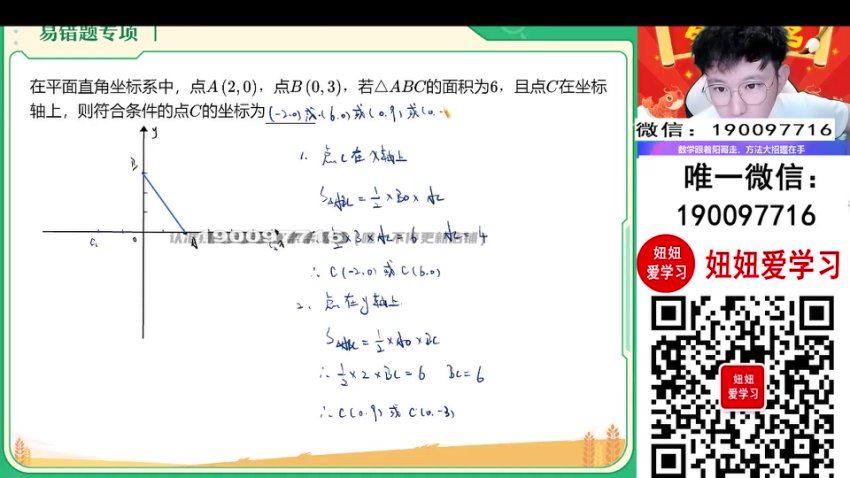 易错题专项
在平面直角坐标系中，点A(2,0)，点B(0,3)，若△ABC的面积为6，且点C在坐标
轴上，则符合条件的点C的坐标为(-2.0)或(6.0)或(0.9)或(0.-
y
B
C₁ 0 A
1. 点C在x轴上
S△ABC=½×BO×AC
½×3×AC=6 AC=4
∴C(-2.0)或C(6.0)
2. 点在y轴上
S△ABC=½×AO×BC
∴½×2×BC=6 BC=6
∴C(0.9)或C(0.-3)
190097716
微信：190097716
数学跟着阳哥走，方法大招握在手
唯一微信：
190097716
妞妞
爱学习
妞妞爱学习
妞妞
爱学习